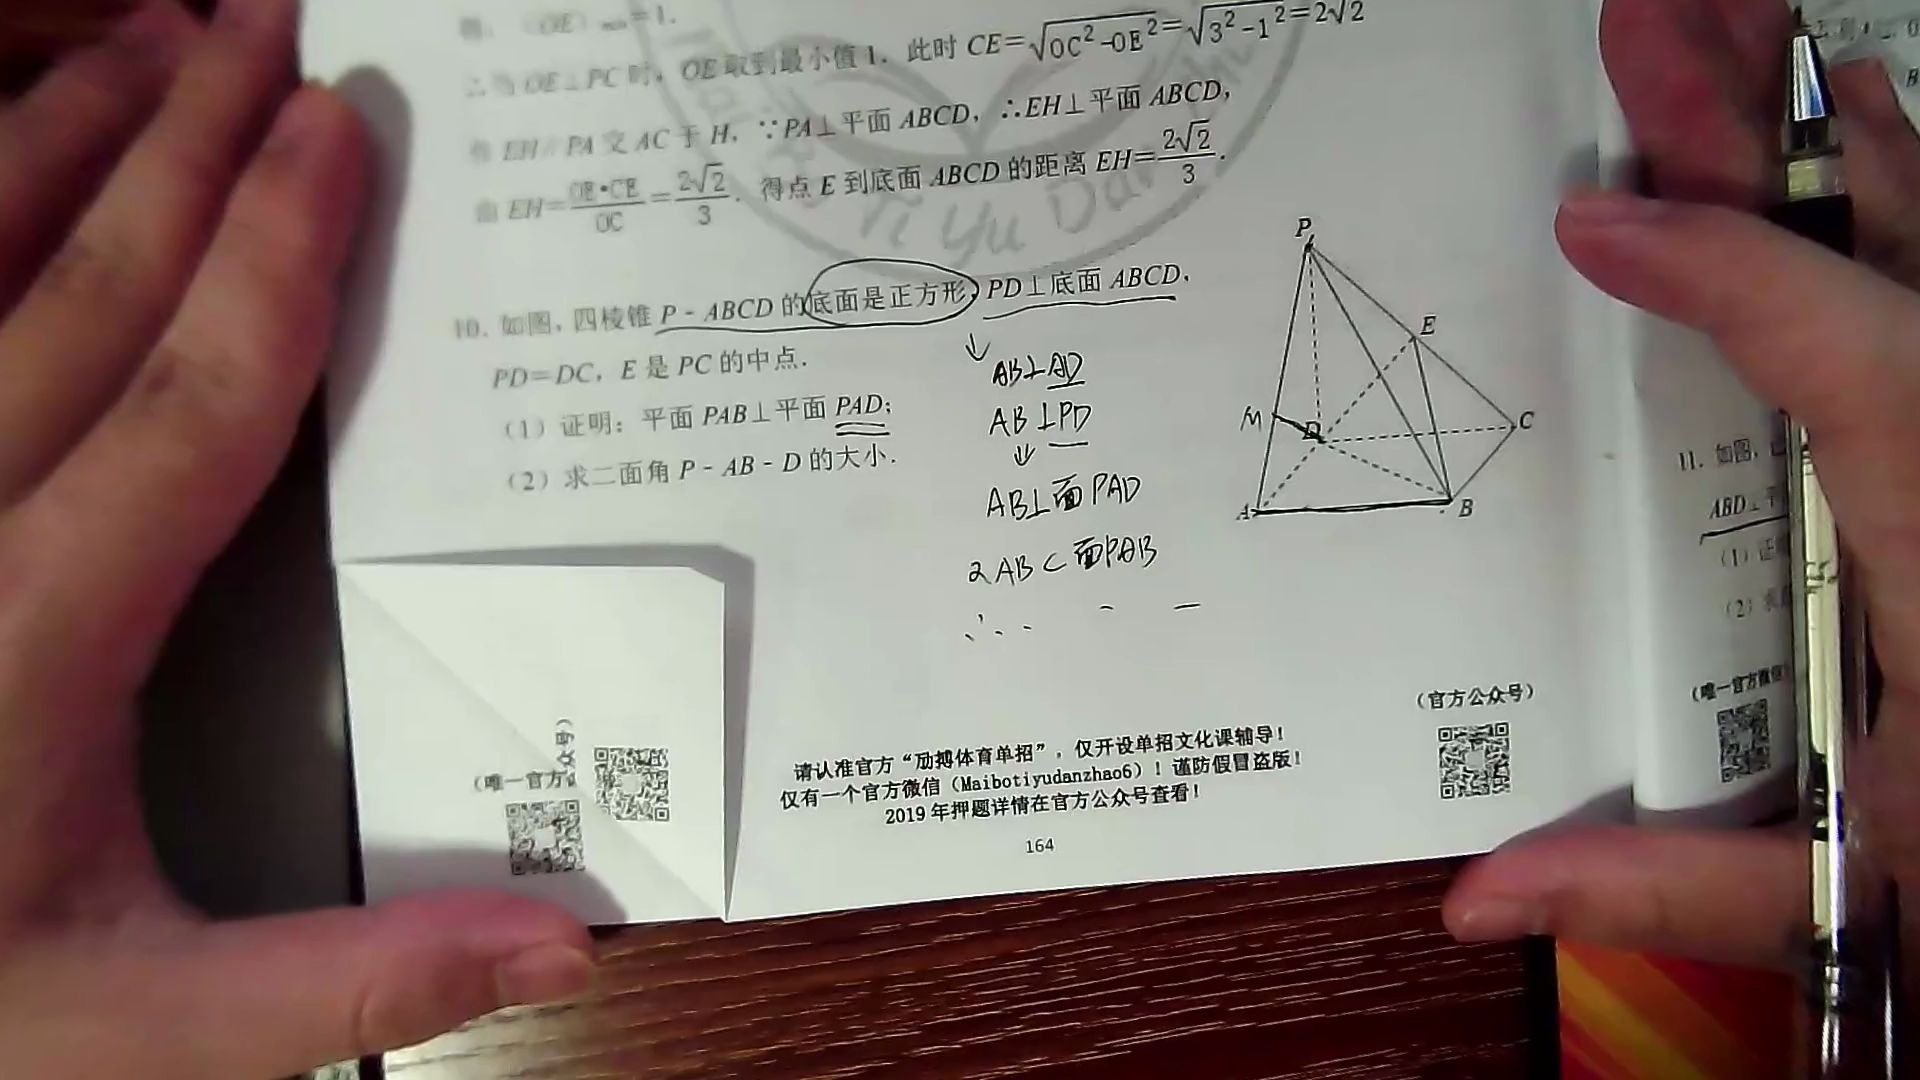 (OE) min=1.
∴当 OE⊥PC 时，OE 取到最小值 1．此时 CE=√(OC²-OE²)=√(3²-1²)=2√2
作 EH∥PA 交 AC 于 H，∵PA⊥平面 ABCD，∴EH⊥平面 ABCD，
由 EH=OE•CE/OC=2√2/3．得点 E 到底面 ABCD 的距离 EH=2√2/3．
Ti Yu Dan
10．如图，四棱锥 P-ABCD 的底面是正方形，PD⊥底面 ABCD，
PD=DC，E 是 PC 的中点．
（1）证明：平面 PAB⊥平面 PAD；
（2）求二面角 P-AB-D 的大小．
↓
AB⊥AD
AB⊥PD
↓
AB⊥面PAD
2AB⊂面PAB
∴
P
E
M
D
C
A
B
11．如图，
ABD⊥平
（1）证
（2）求
（唯一官方微信
（官方公众号）
（唯一官方
众号）
请认准官方“劢搏体育单招”，仅开设单招文化课辅导！
仅有一个官方微信（Maibotiyudanzhao6）！谨防假冒盗版！
2019 年押题详情在官方公众号查看！
164